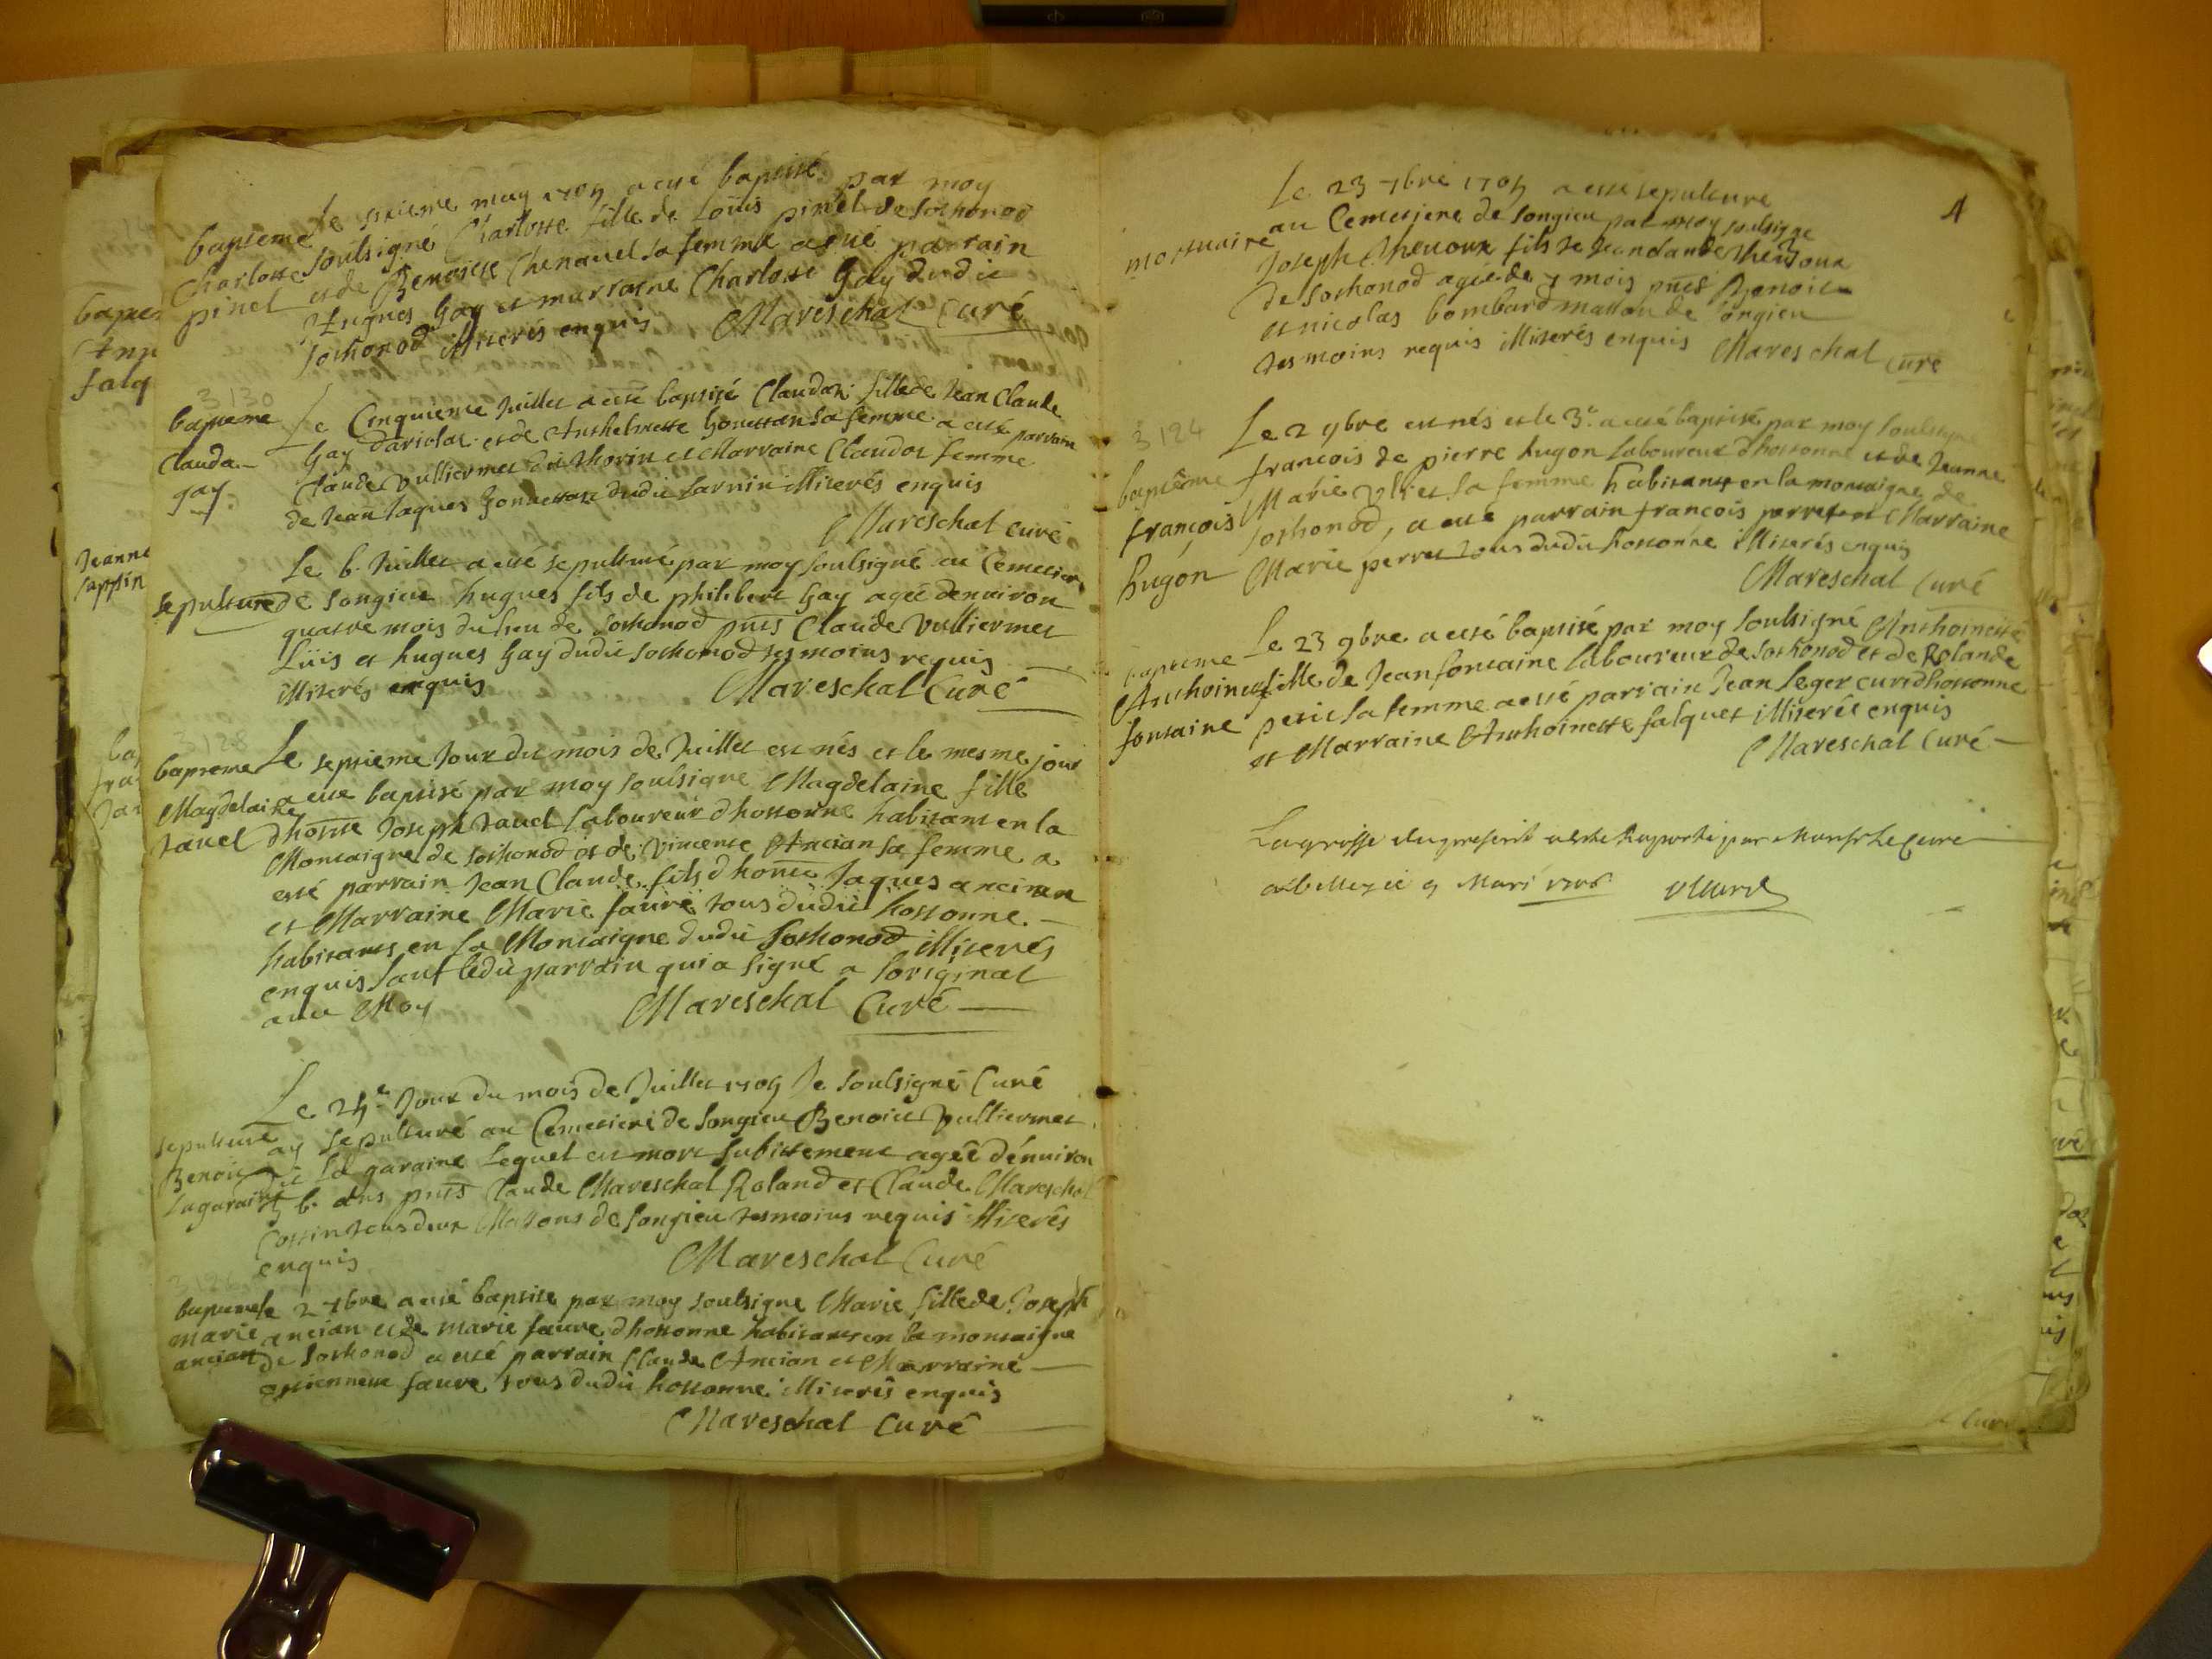 Le sixieme may 1705 a esté baptisé par moy
bapteme soulsigné Charlotte fille de Loüis pinel de sothonod
Charlotte et de Benoiste Chenavel sa femme a esté parrain
pinel Hugues Gay et marraine Charlotte Gay dudit
sothonod illiterés enquis Mareschal Curé
3130
bapteme Le Cinquieme Juillet a esté baptisé Claudaz fille de Jean Claude
Clauda Gay et de Anthelmette Gonettan sa femme a esté parrain
gay Claude Vulliermet de Thorin et Marraine Claudaz femme
de Jean Jaques dudit illiterés enquis
Mareschal curé
Le 6. Juillet a esté sepulturé par moy soulsigné au Cemetiere
sepulture de songieu hugues fils de philibert Gay agée denviron
quatre mois du lieu de sothonod pnts Claude Vulliermet
Luis et hugues Gay dudit sothonod tesmoins requis
illiterés enquis Mareschal Curé
3128
bapteme Le septieme Jour du mois de Juillet est nés et le mesme jour
Magdelaine a esté baptisé par moy soulsigne Magdelaine fille
tavel dhonte Joseph tavel laboureur dhostonne habitant en la
Montaigne de sothonod et de vincente Ancian sa femme a
esté parrain Jean Claude fils dhonte Jaques ancian
et Marraine Marie favre tous dudit hostonne.
habitants en la Montaigne dudit Sothonod illiterés
enquis sauf ledit parrain qui a signé a loriginal
avec Moy Mareschal Curé
Le 24e Jour du mois de Juillet 1705 Je soulsigné Curé
sepulture ay sepulturé au Cemetiere de songieu Benoict Vulliermet
Benoict dit La garaine Lequel est mort subittement agée dénviron
Lagaraine 6. ans pnts Claude Mareschal Roland et Claude Mareschal
Cottin tous deux Massons de songieu tesmoins requis illiterés
enquis Mareschal Curé
bapteme le 2 7bre a esté baptisé par moy soulsigne Marie fille de Joseph
marie ancian et de marie favre dhostonne habitants en la montaigne
ancian de sothonod a esté parrain Claude Ancian et Marraine
estiennette favre tous dudit hostonne illiterés enquis
Mareschal Curé
4
Le 23 7bre 1705 a esté sepulture
mortuaire au Cemetiere de songieu par moy soulsigne
Joseph thevoux fils de Jean claude thevoux
de sothonod agée de 7 mois pnts Benoict
et nicolas bombard masson de songieu
tesmoins requis illiterés enquis Mareschal curé
3124
Le 2 9bre est nés et le 3e. a esté baptisé par moy soulsigne
baptême francois de pierre hugon laboureur dhostonne et de Jeanne
françois Marie sa femme habitants en la montaigne de
hugon sothonod, a esté parrain francois perret et Marraine
Marie perret tous dudit hostonne illiterés enquis
Mareschal Curé
bapteme Le 23 9bre a esté baptisé par moy soulsigné Anthoinette
Anthoinette fille de Jean fontaine laboureur de sothonod et de Rolande
fontaine petit sa femme a esté parrain Jean Leger curé dhostonne
et Marraine Anthoinette falquet illiterés enquis
Mareschal Curé
La grosse du present a esté Raportée par Monsr Le Cure
a belley ce 9 Mars 1706